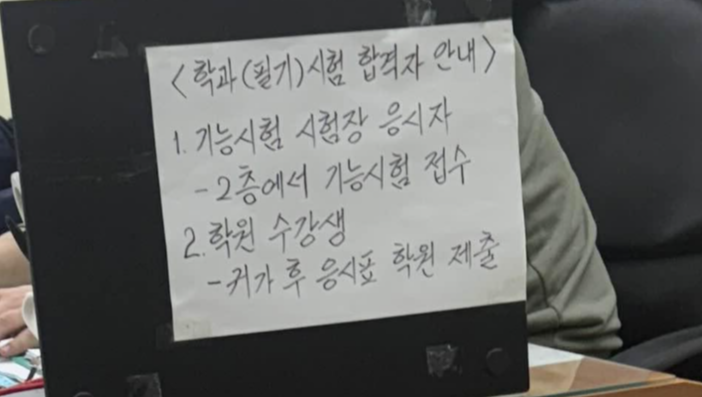 <학과(필기)시험 합격자 안내>
1. 기능시험 시험장 응시자
-2층에서 기능시험 접수
2. 학원 수강생
-귀가 후 응시표 학원 제출